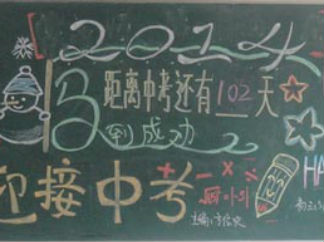 2014
距离中考还有102天
马到成功
迎接中考
+ - × ÷
HA